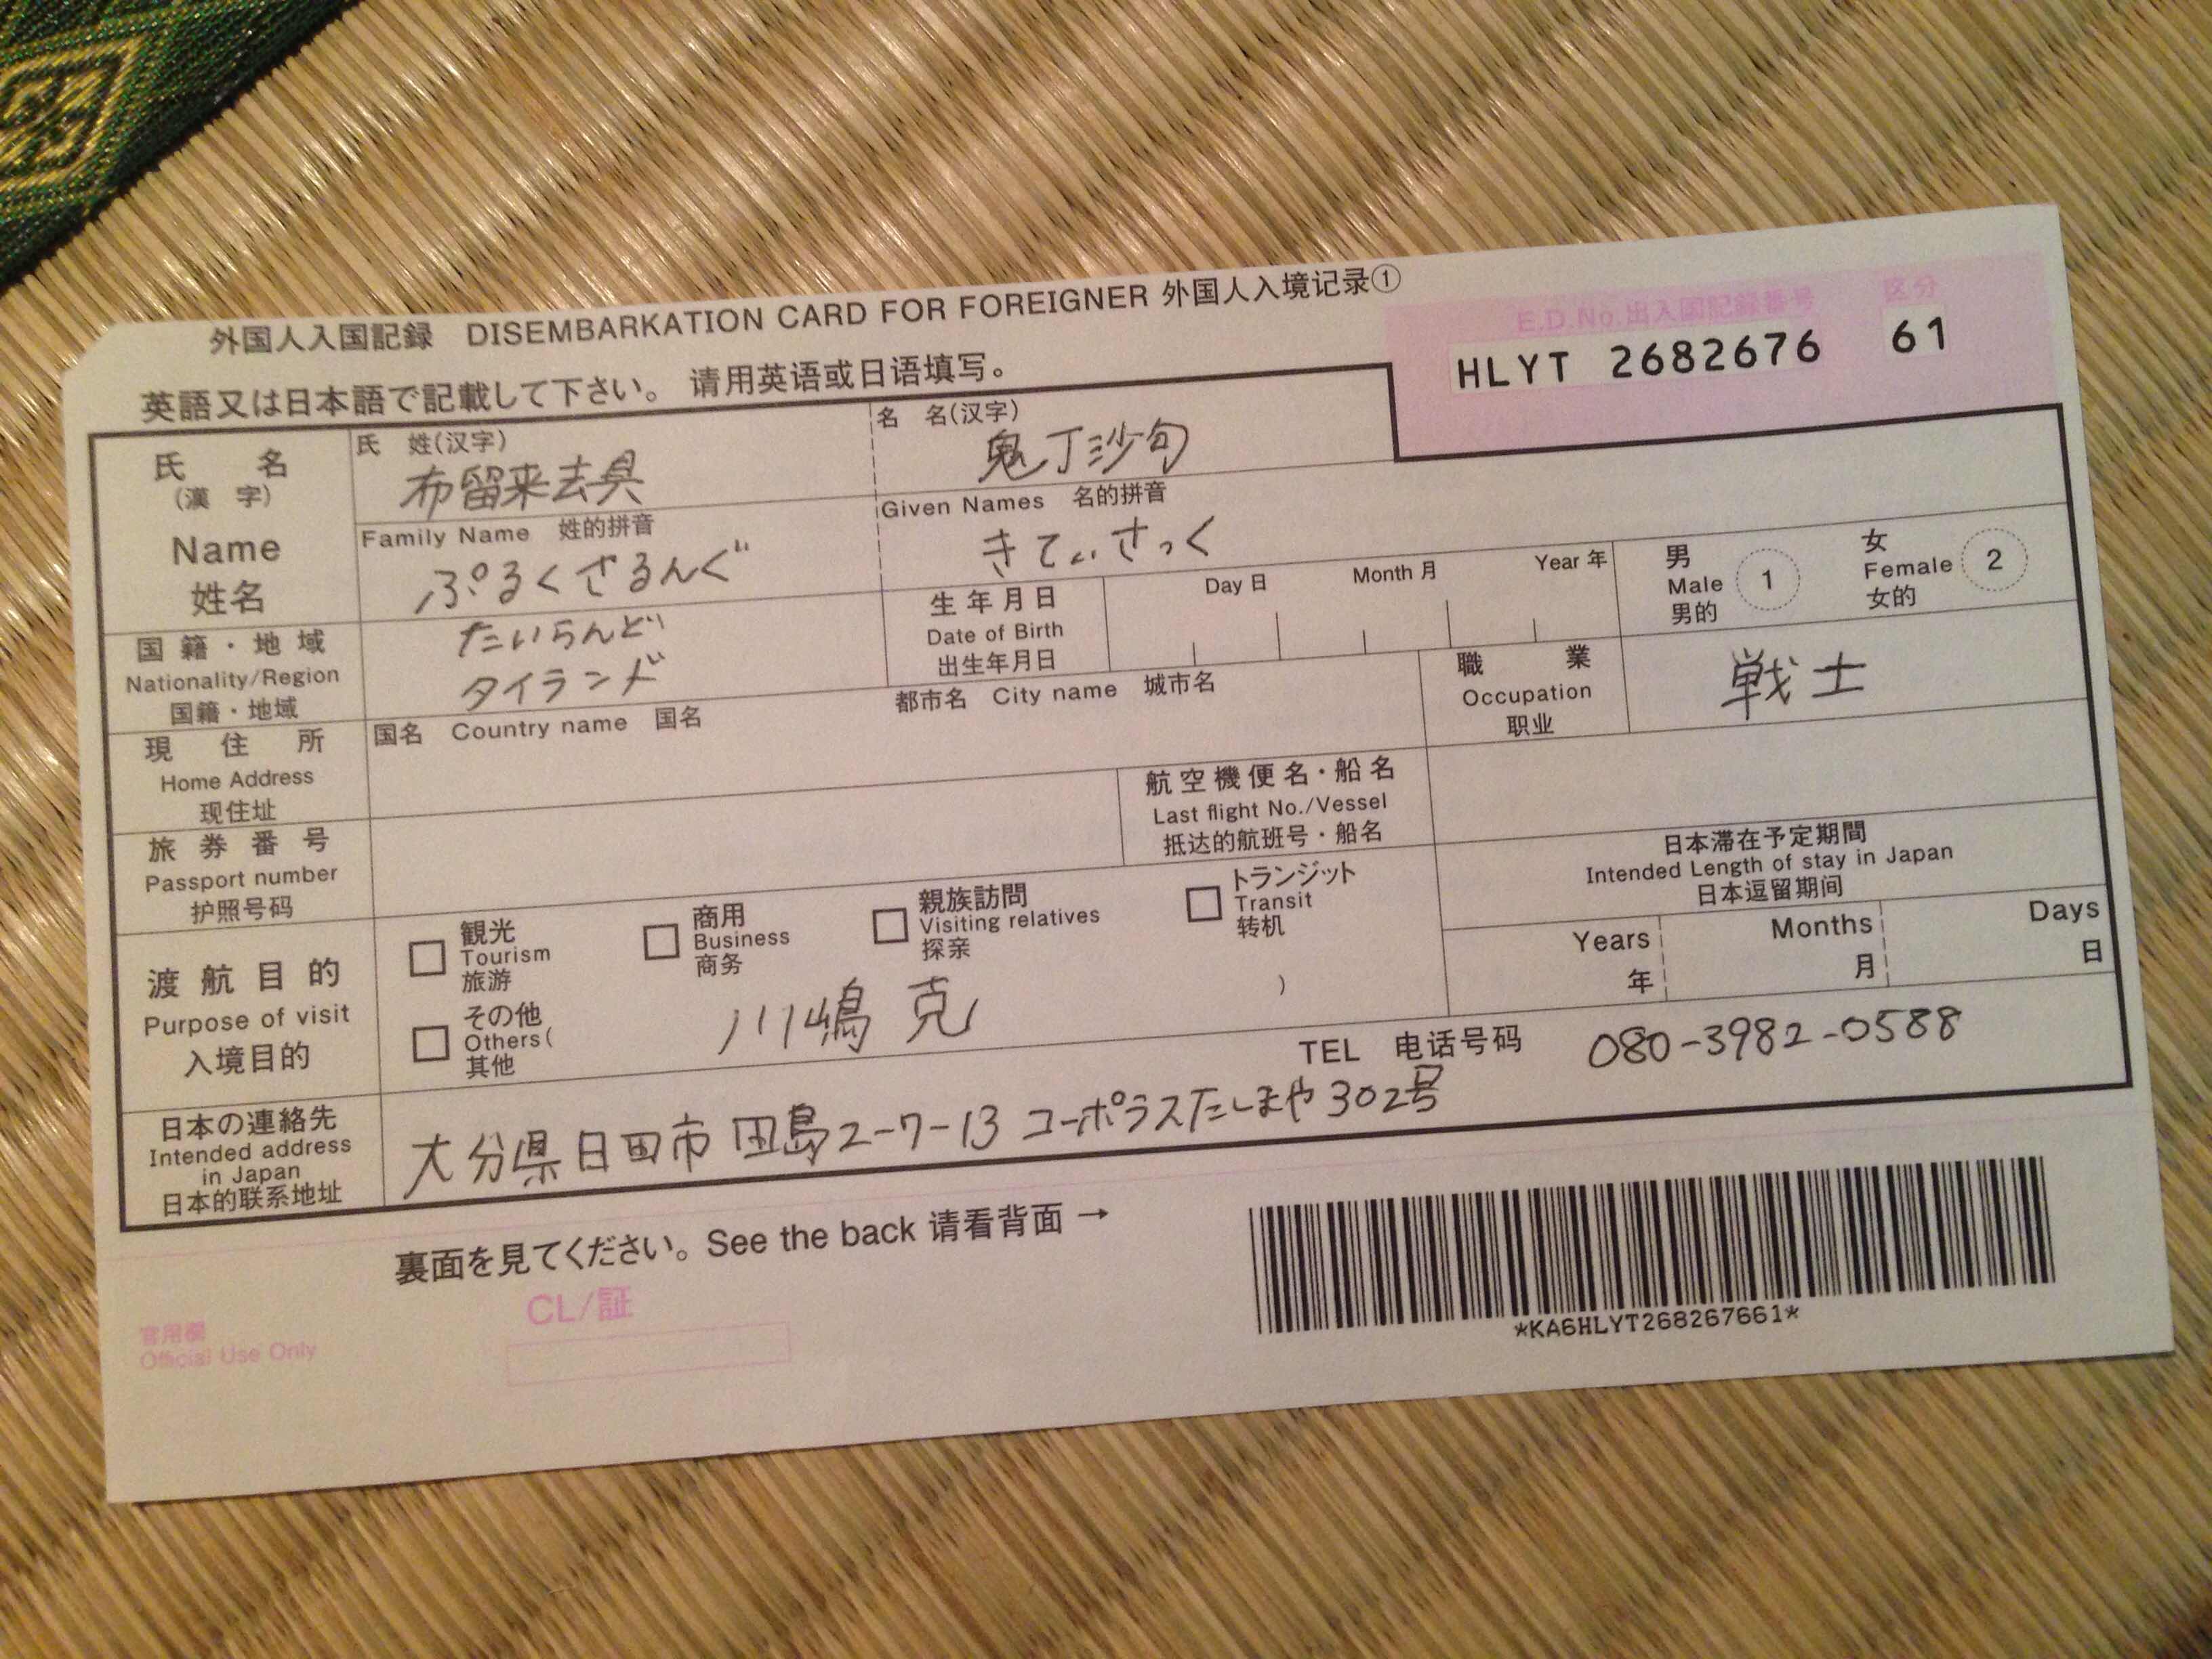 外国人入国記録 DISEMBARKATION CARD FOR FOREIGNER 外国人入境记录①
E.D.No.出入国記録番号 区分
HLYT 2682676 61
英語又は日本語で記載して下さい。 请用英语或日语填写。
氏 名
(漢 字)
Name
姓名
氏 姓(汉字)
布留来去具
名 名(汉字)
鬼丁沙句
Family Name 姓的拼音
ぷるくさるんぐ
Given Names 名的拼音
きてぃさっく
国籍・地域
Nationality/Region
国籍・地域
たいらんど
タイランド
生年月日
Date of Birth
出生年月日
Day 日 Month 月 Year 年
男
Male 1
男的
女
Female 2
女的
現住所
Home Address
现住址
国名 Country name 国名
都市名 City name 城市名
職業
Occupation
职业
戦士
旅券番号
Passport number
护照号码
航空機便名・船名
Last flight No./Vessel
抵达的航班号・船名
渡航目的
Purpose of visit
入境目的
観光
Tourism
旅游
商用
Business
商务
親族訪問
Visiting relatives
探亲
トランジット
Transit
转机
その他
Others( )
其他
川嶋 克
日本滞在予定期間
Intended Length of stay in Japan
日本逗留期间
Years Months Days
年 月 日
日本の連絡先
Intended address
in Japan
日本的联系地址
TEL 电话号码 080-3982-0588
大分県日田市田島2-7-13 コーポラスたしまや302号
裏面を見てください。See the back 请看背面 →
官用欄
Official Use Only
CL/証
*KA6HLYT268267661*